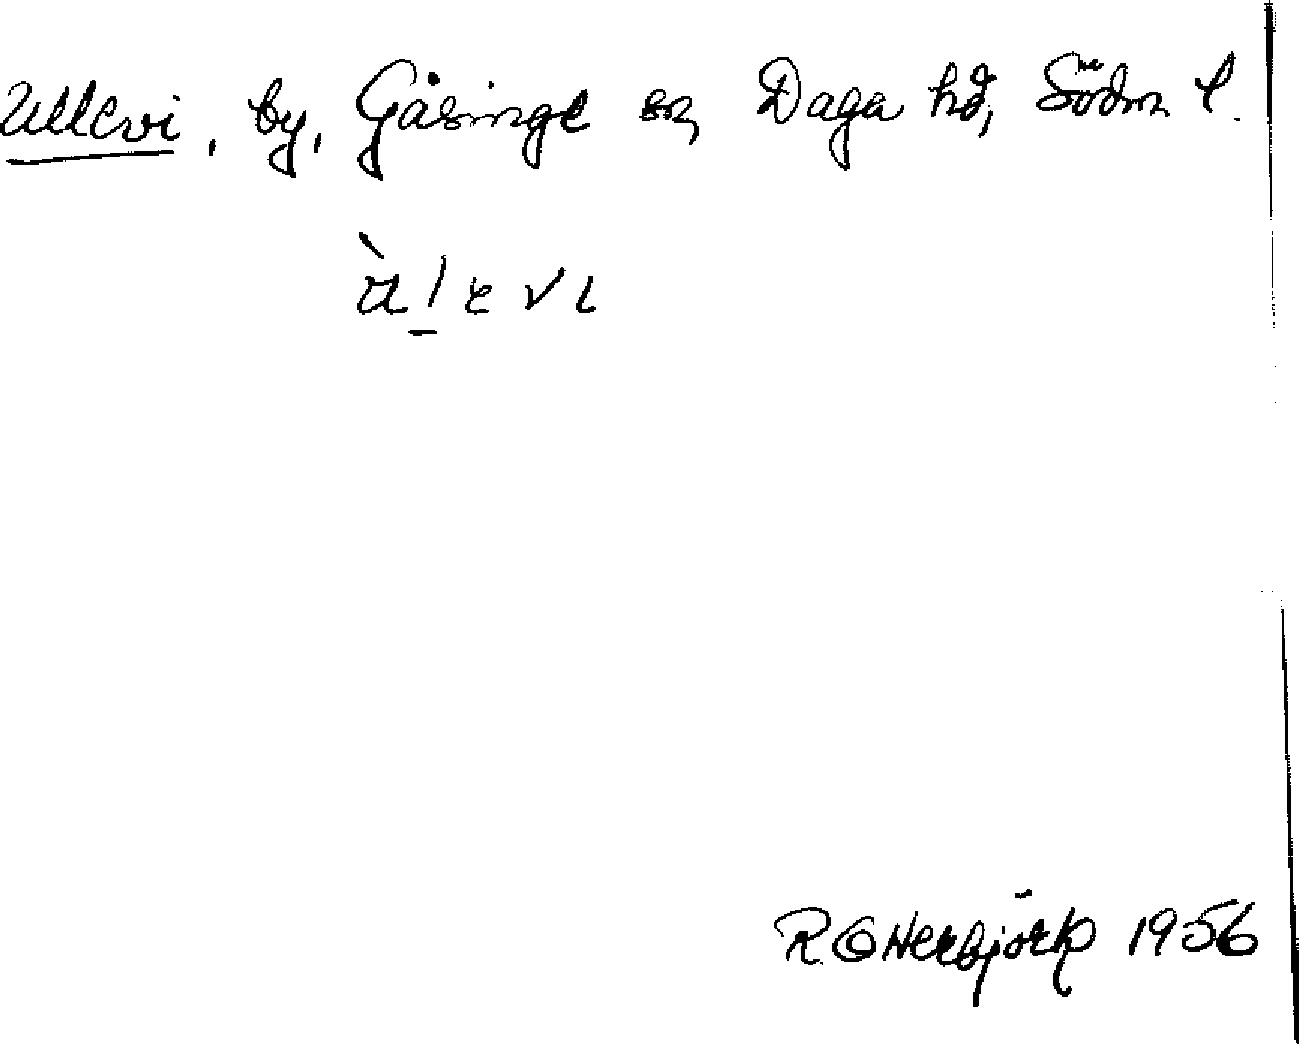 Ullevi, by, Gåsinge sn, Daga hd, Södm l.
R O Herbjörk 1956